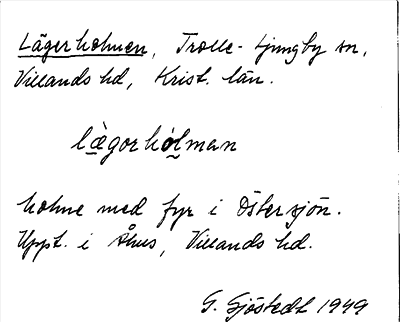 Lägerholmen, Trolle-Ljungby sn,
Villands hd, Krist. län.
lȁ̱gorhó̱lman
holme med fyr i Östersjön.
Uppt. i Åhus, Villands hd.
G. Sjöstedt 1949